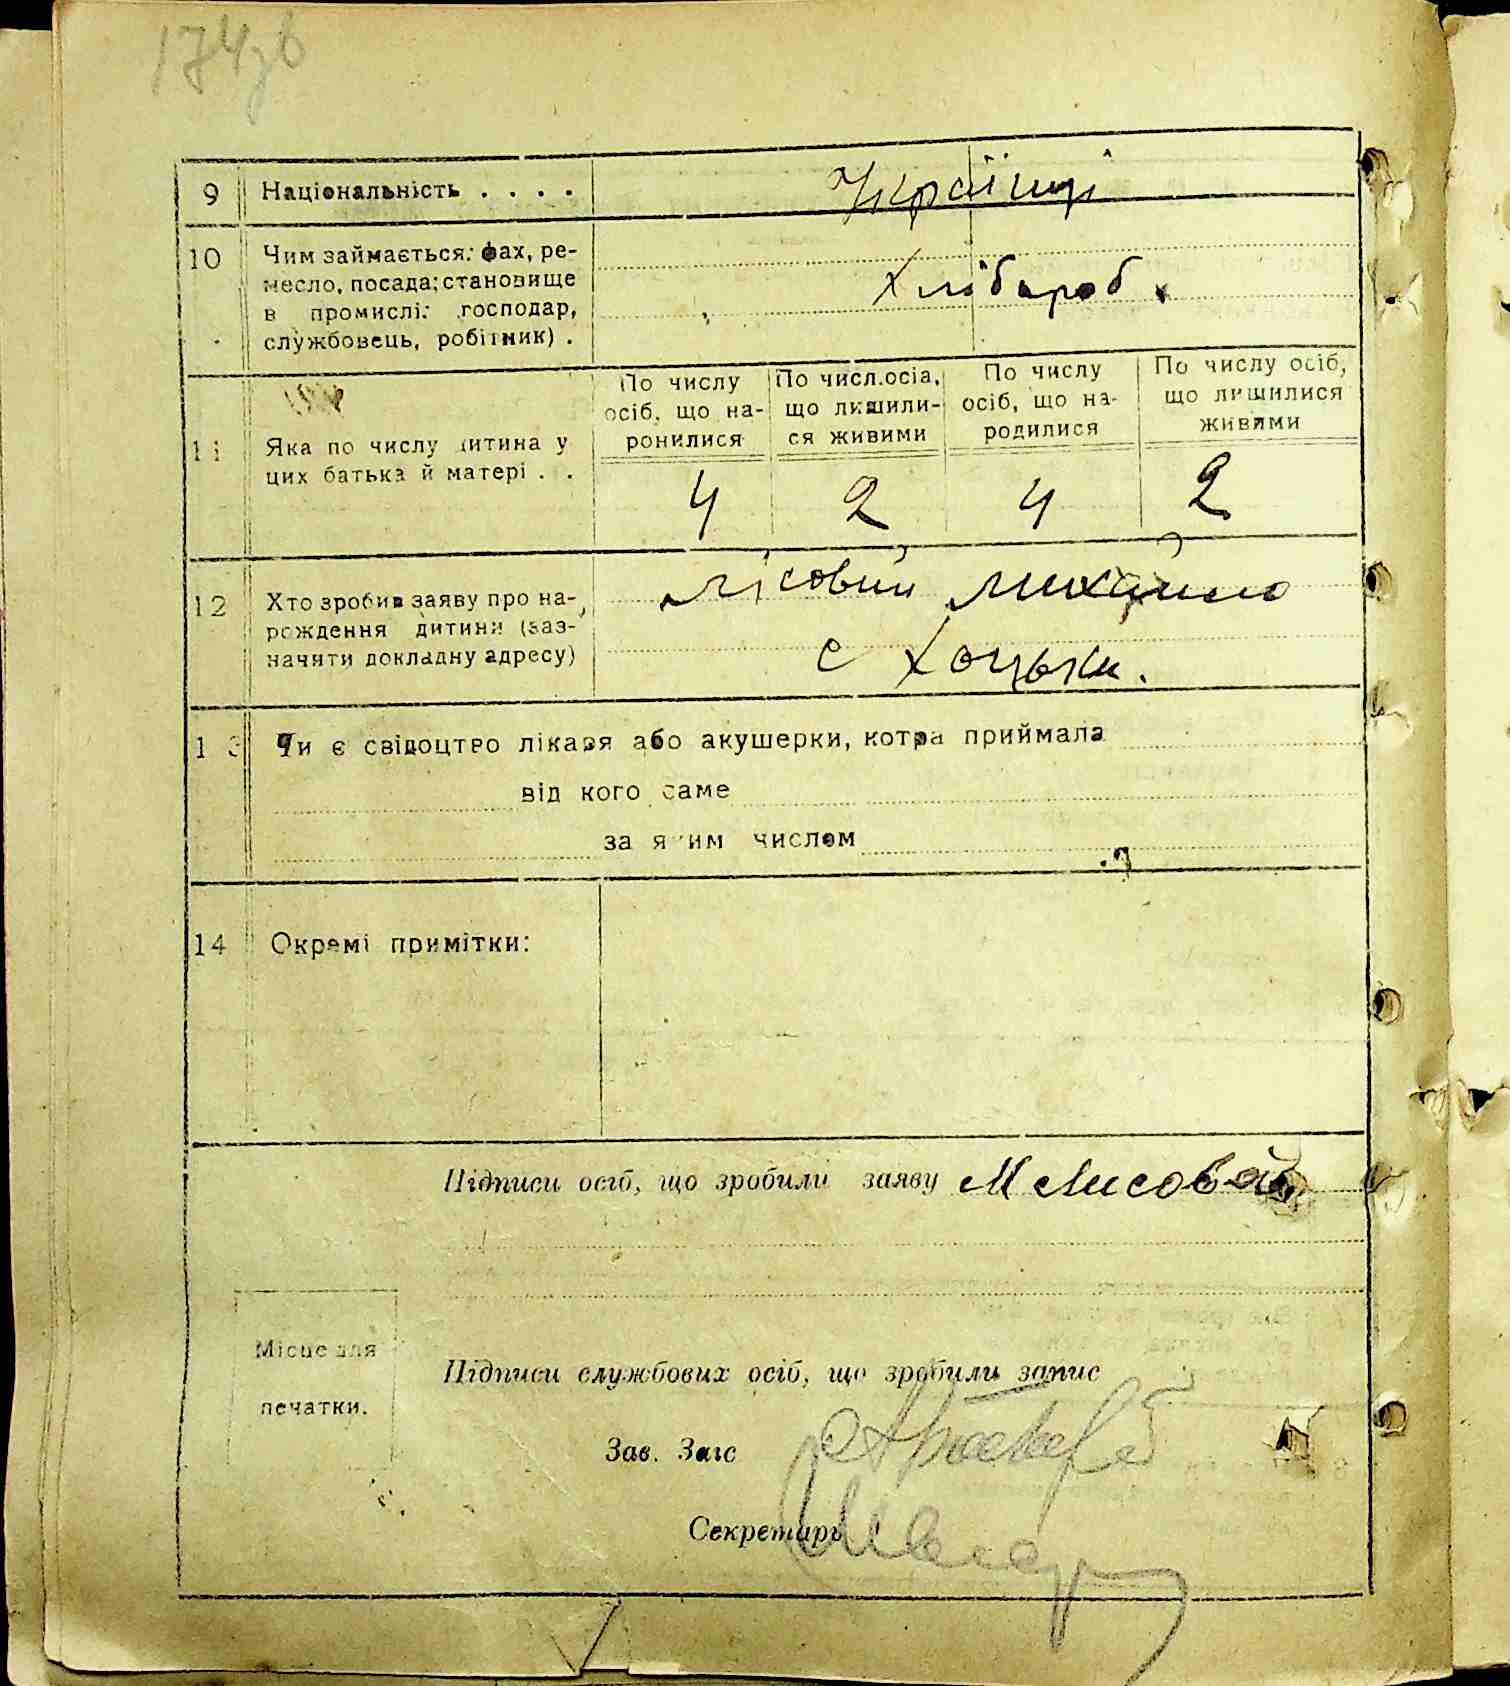 174зв
9 Національність . . . . Українці
10 Чим займається: фах, ре-
месло, посада; становище
в промислі: господар,
службовець, робітник) .
Хлібороб.
По числу осіб, що на-ронилися
По числ.осіа, що лишили-ся живими
По числу осіб, що на-родилися
По числу осіб, що лишилися живими
11 Яка по числу дитина у
цих батька й матері . .
4 2 4 2
12 Хто зробив заяву про на-
рождення дитини (заз-
начити докладну адресу)
Лісовий Михайло
с Хоцьки.
13 Чи є свідоцтво лікаря або акушерки, котра приймала
від кого саме
за яким числом
14 Окремі примітки:
Підписи осіб, що зробили заяву М Лисовой
Місце для
печатки.
Підписи службових осіб, що зробили запис
Зав. Загс
Секретарь